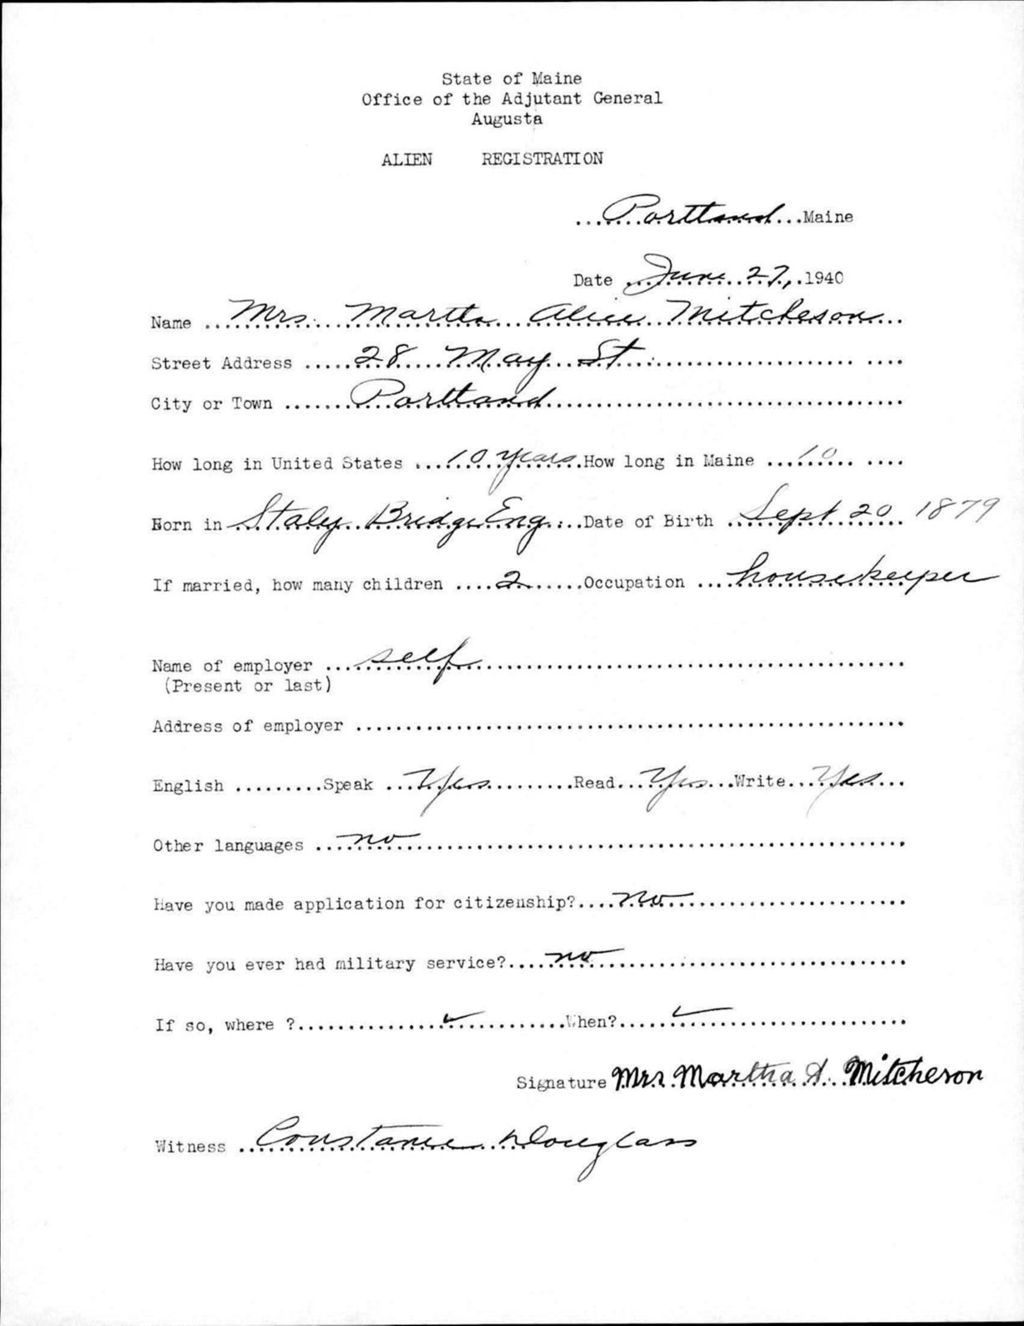 State of Maine
Office of the Adjutant General
Augusta
ALIEN REGISTRATION
Portland Maine
Date June 27, 1940
Name Mrs. Martha Alice Mitcheson
Street Address 28 May St.
City or Town Portland
How long in United States 10 years How long in Maine 10
Born in Staley Bridge Eng. Date of Birth Sept 20 1879
If married, how many children 2 Occupation housekeeper
Name of employer self
(Present or last)
Address of employer
English Speak Yes Read Yes Write Yes
Other languages no
Have you made application for citizenship? no
Have you ever had military service? no
If so, where ? When?
Signature Mrs. Martha A. Mitcheson
Witness Constance Douglass